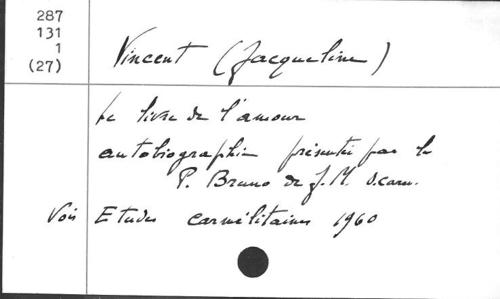 287
131
1
(27)
Vincent (Jacqueline)
Le livre de l'amour
autobiographie présentée par le
P. Bruno de J.M. o.carm.
Vois Etudes carmélitaines 1960